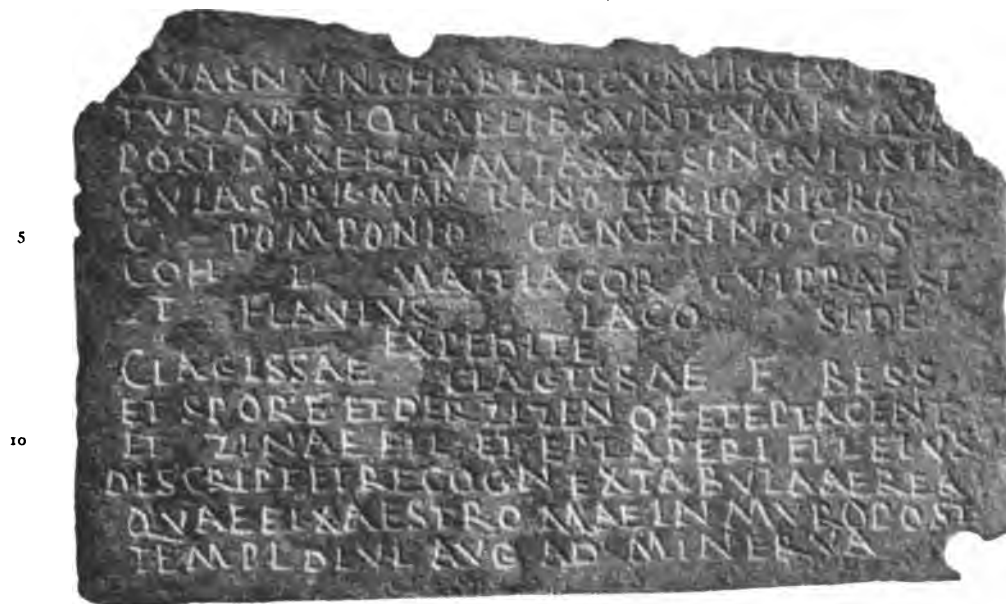 QVAS NVNC HABENT CVM IIS CIVI
TVR AVT SI Q CAELIB SVNT CVM IS QVA
POST DVXER DVMTAXAT SINGVLI SIN
GVLAS MAR RANO IVNIO NIGRO
5 C POMPONIO CAMERINO COS
COH II MATTIACOR CVI PRAEST
T FLAVIVS LACO SEDE
EXPEDITE
CLAGISSAE CLAGISSAE F BESS
ET SPORE ET DERZIZENO F ET EPTACENT
10 ET ZINAE FIL ET EPTAPERI FIL EIVS
DESCRIPT ET RECOGN EX TABVLA AEREA
QVAE FIXA EST ROMAE IN MVRO POST
TEMPL DIVI AVG AD MINERVA